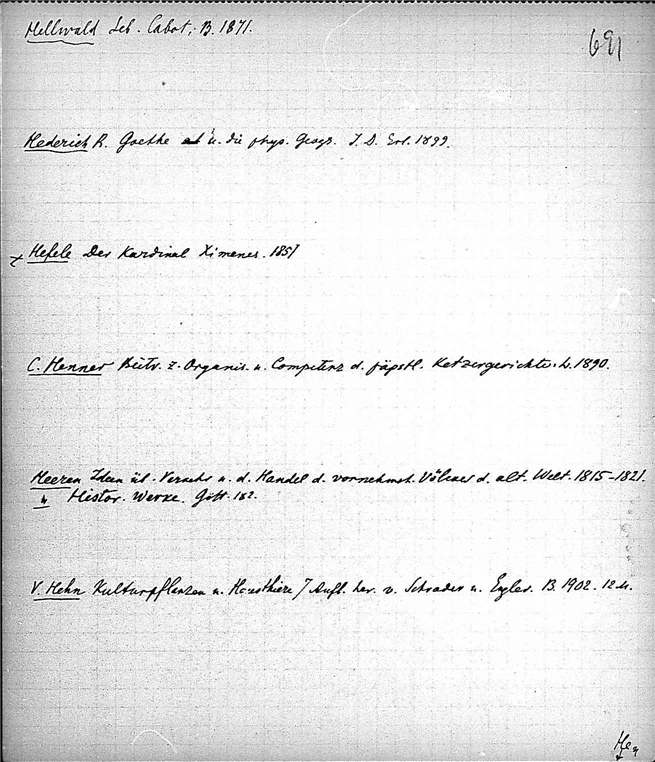 Hellwald Seb. Cabot, B. 1871.
691
Hederich R. Goethe u. die phys. Geogr. I. D. Erl. 1899.
x Hefele Der Kardinal Ximenes. 1851
C. Henner Beitr. z. Organis. u. Competenz d. päpstl. Ketzergerichte. L. 1890.
Heeren Ideen üb. Verkehr u. d. Handel d. vornehmst. Völker d. alt. Welt. 1815-1821.
" Histor. Werke. Gött.
V. Hehn Kulturpflanzen u. Hausthiere 7 Aufl. her. v. Schrader u. Engler. B. 1902. 12 M.